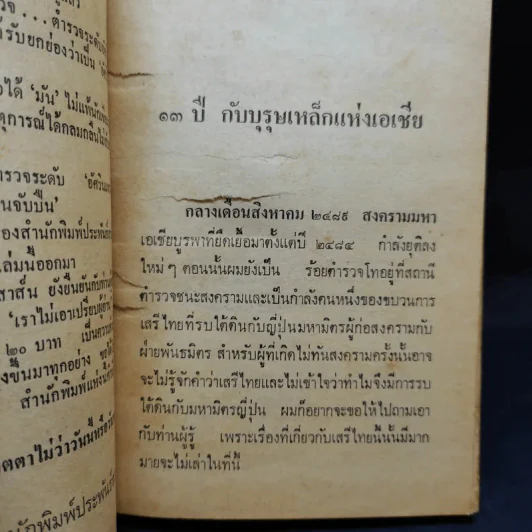 รวจ ... ตำรวจระดับ
รับยกย่องว่าเป็น
ได้ 'มัน' ไม่แพ้
ตุการณ์ได้กลมกลืน
ารวจระดับ 'อัศวิน
นจับปืน'
องสำนักพิมพ์ประพันธ์
ล่มนี้ออกมา
าส์น ยังยืนยันกับท่าน
'เราไม่เอาเปรียบผู้อ่าน
๒๐ บาท เป็นความ
งขึ้นมาทุกอย่าง ขอให้
สำนักพิมพ์แห่งนี้
ตตาไม่ว่าวันนี้หรือวัน
นักพิมพ์ประพันธ์
๑๓ ปี กับบุรุษเหล็กแห่งเอเซีย
กลางเดือนสิงหาคม ๒๔๘๙ สงครามมหา
เอเซียบูรพาที่ยืดเยื้อมาตั้งแต่ปี ๒๔๘๔ กำลังยุติลง
ใหม่ ๆ ตอนนั้นผมยังเป็น ร้อยตำรวจโทอยู่ที่สถานี
ตำรวจชนะสงครามและเป็นกำลังคนหนึ่งของขบวนการ
เสรีไทยที่รบใต้ดินกับญี่ปุ่นมหามิตรผู้ก่อสงครามกับ
ฝ่ายพันธมิตร สำหรับผู้ที่เกิดไม่ทันสงครามครั้งนั้นอาจ
จะไม่รู้จักคำว่าเสรีไทยและไม่เข้าใจว่าทำไมจึงมีการรบ
ใต้ดินกับมหามิตรญี่ปุ่น ผมก็อยากจะขอให้ไปถามเอา
กับท่านผู้รู้ เพราะเรื่องที่เกี่ยวกับเสรีไทยนี้นั้นมีมาก
มายจะไม่เล่าในที่นี้